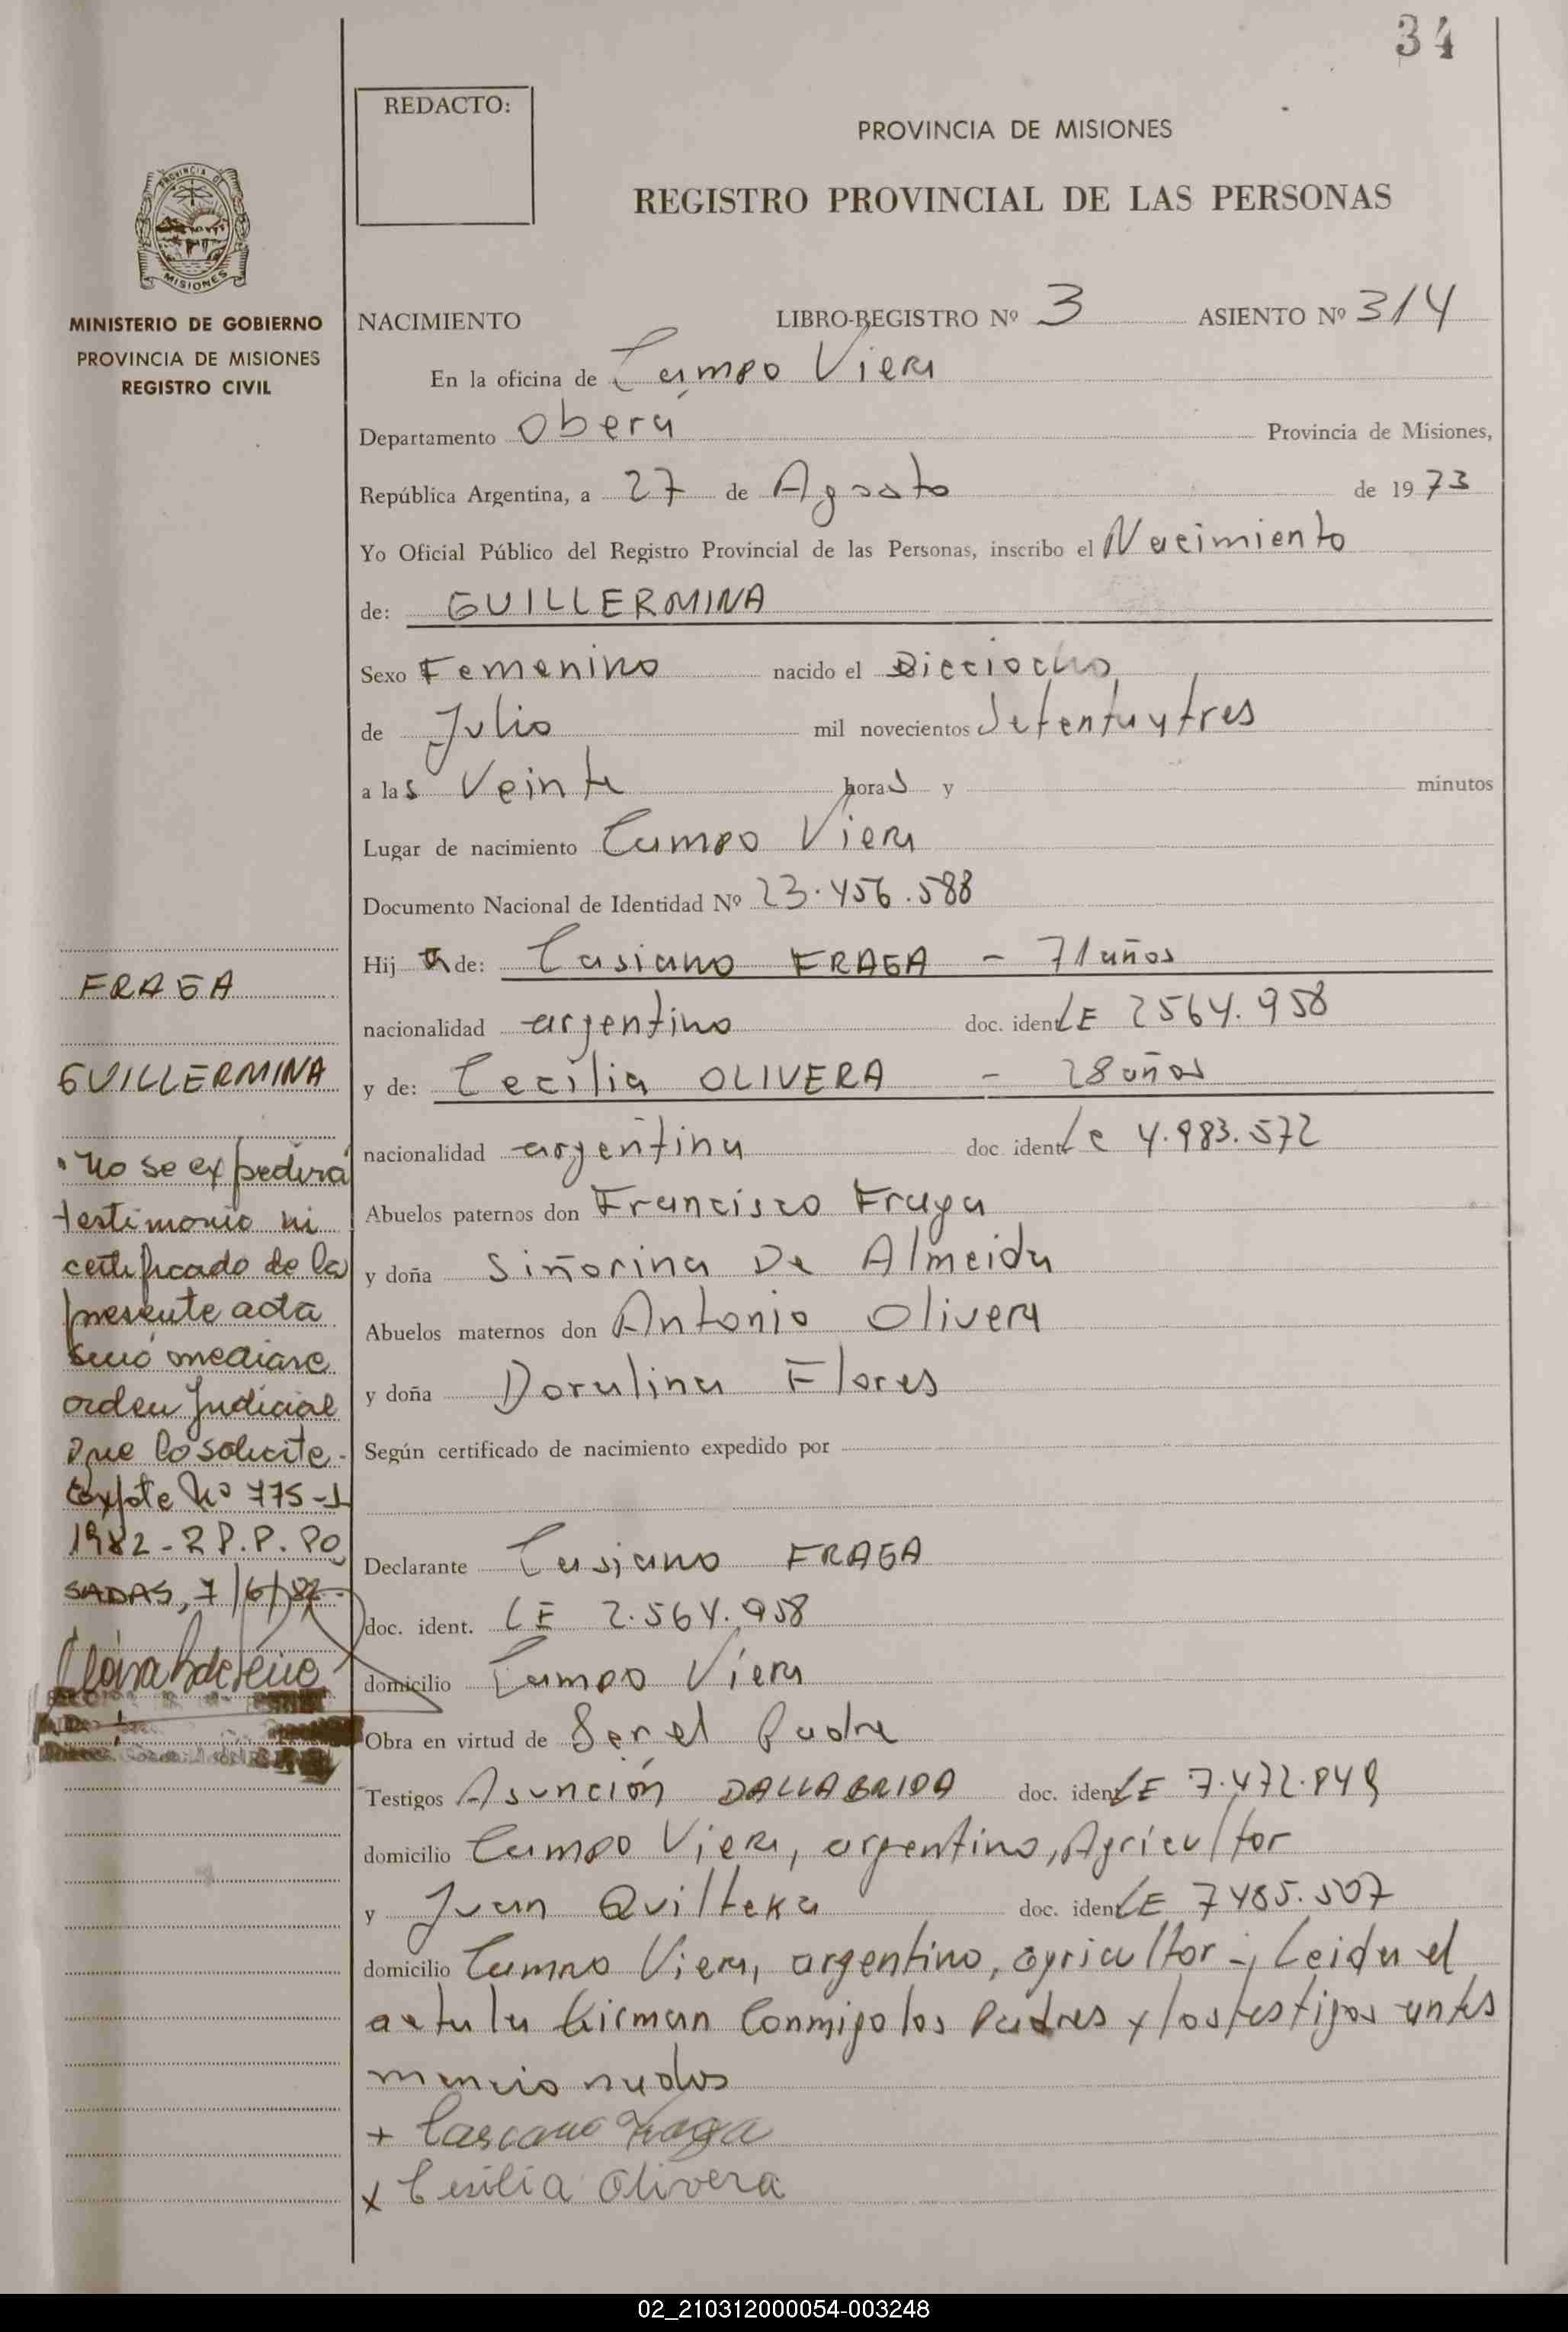 34
REDACTO:
PROVINCIA DE MISIONES
REGISTRO PROVINCIAL DE LAS PERSONAS
PROVINCIA DE
MISIONES
MINISTERIO DE GOBIERNO
PROVINCIA DE MISIONES
REGISTRO CIVIL
NACIMIENTO LIBRO-REGISTRO Nº 3 ASIENTO Nº 314
En la oficina de Campo Viera
Departamento Oberá Provincia de Misiones,
República Argentina, a 27 de Agosto de 1973
Yo Oficial Público del Registro Provincial de las Personas, inscribo el Nacimiento
de: GUILLERMINA
Sexo Femenino nacido el Dieciocho
de Julio mil novecientos Setentaytres
a las Veinte horas y minutos
Lugar de nacimiento Campo Viera
Documento Nacional de Identidad Nº 23.456.588
Hij a de: Casiano FRAGA - 71 años
nacionalidad argentino doc. ident LE 2564.958
y de: Cecilia OLIVERA - 28 años
nacionalidad argentina doc ident Lc 4.983.572
Abuelos paternos don Francisco Fraga
y doña Siñorina De Almeida
Abuelos maternos don Antonio Olivera
y doña Doralina Flores
Según certificado de nacimiento expedido por
Declarante Casiano FRAGA
doc. ident. LE 2.564.958
domicilio Campo Viera
Obra en virtud de Ser el Padre
Testigos Asunción DALLABRIDA doc. ident LE 7.472.849
domicilio Campo Viera, argentino, Agricultor
y Juan Quilteka doc. ident LE 7485.507
domicilio Campo Viera, argentino, agricultor -, Leida el
acta la firman Conmigo los Padres y los testigos antes
mencionados
+ Casiano Fraga
x Cesilia Olivera
FRAGA
GUILLERMINA
"No se expedirá
testimonio ni
certificado de la
presente acta
sino mediare
orden Judicial
que lo solicite.
Expte Nº 775-J
1982 - R P.P. PO
SADAS, 7/6/82
02_210312000054-003248